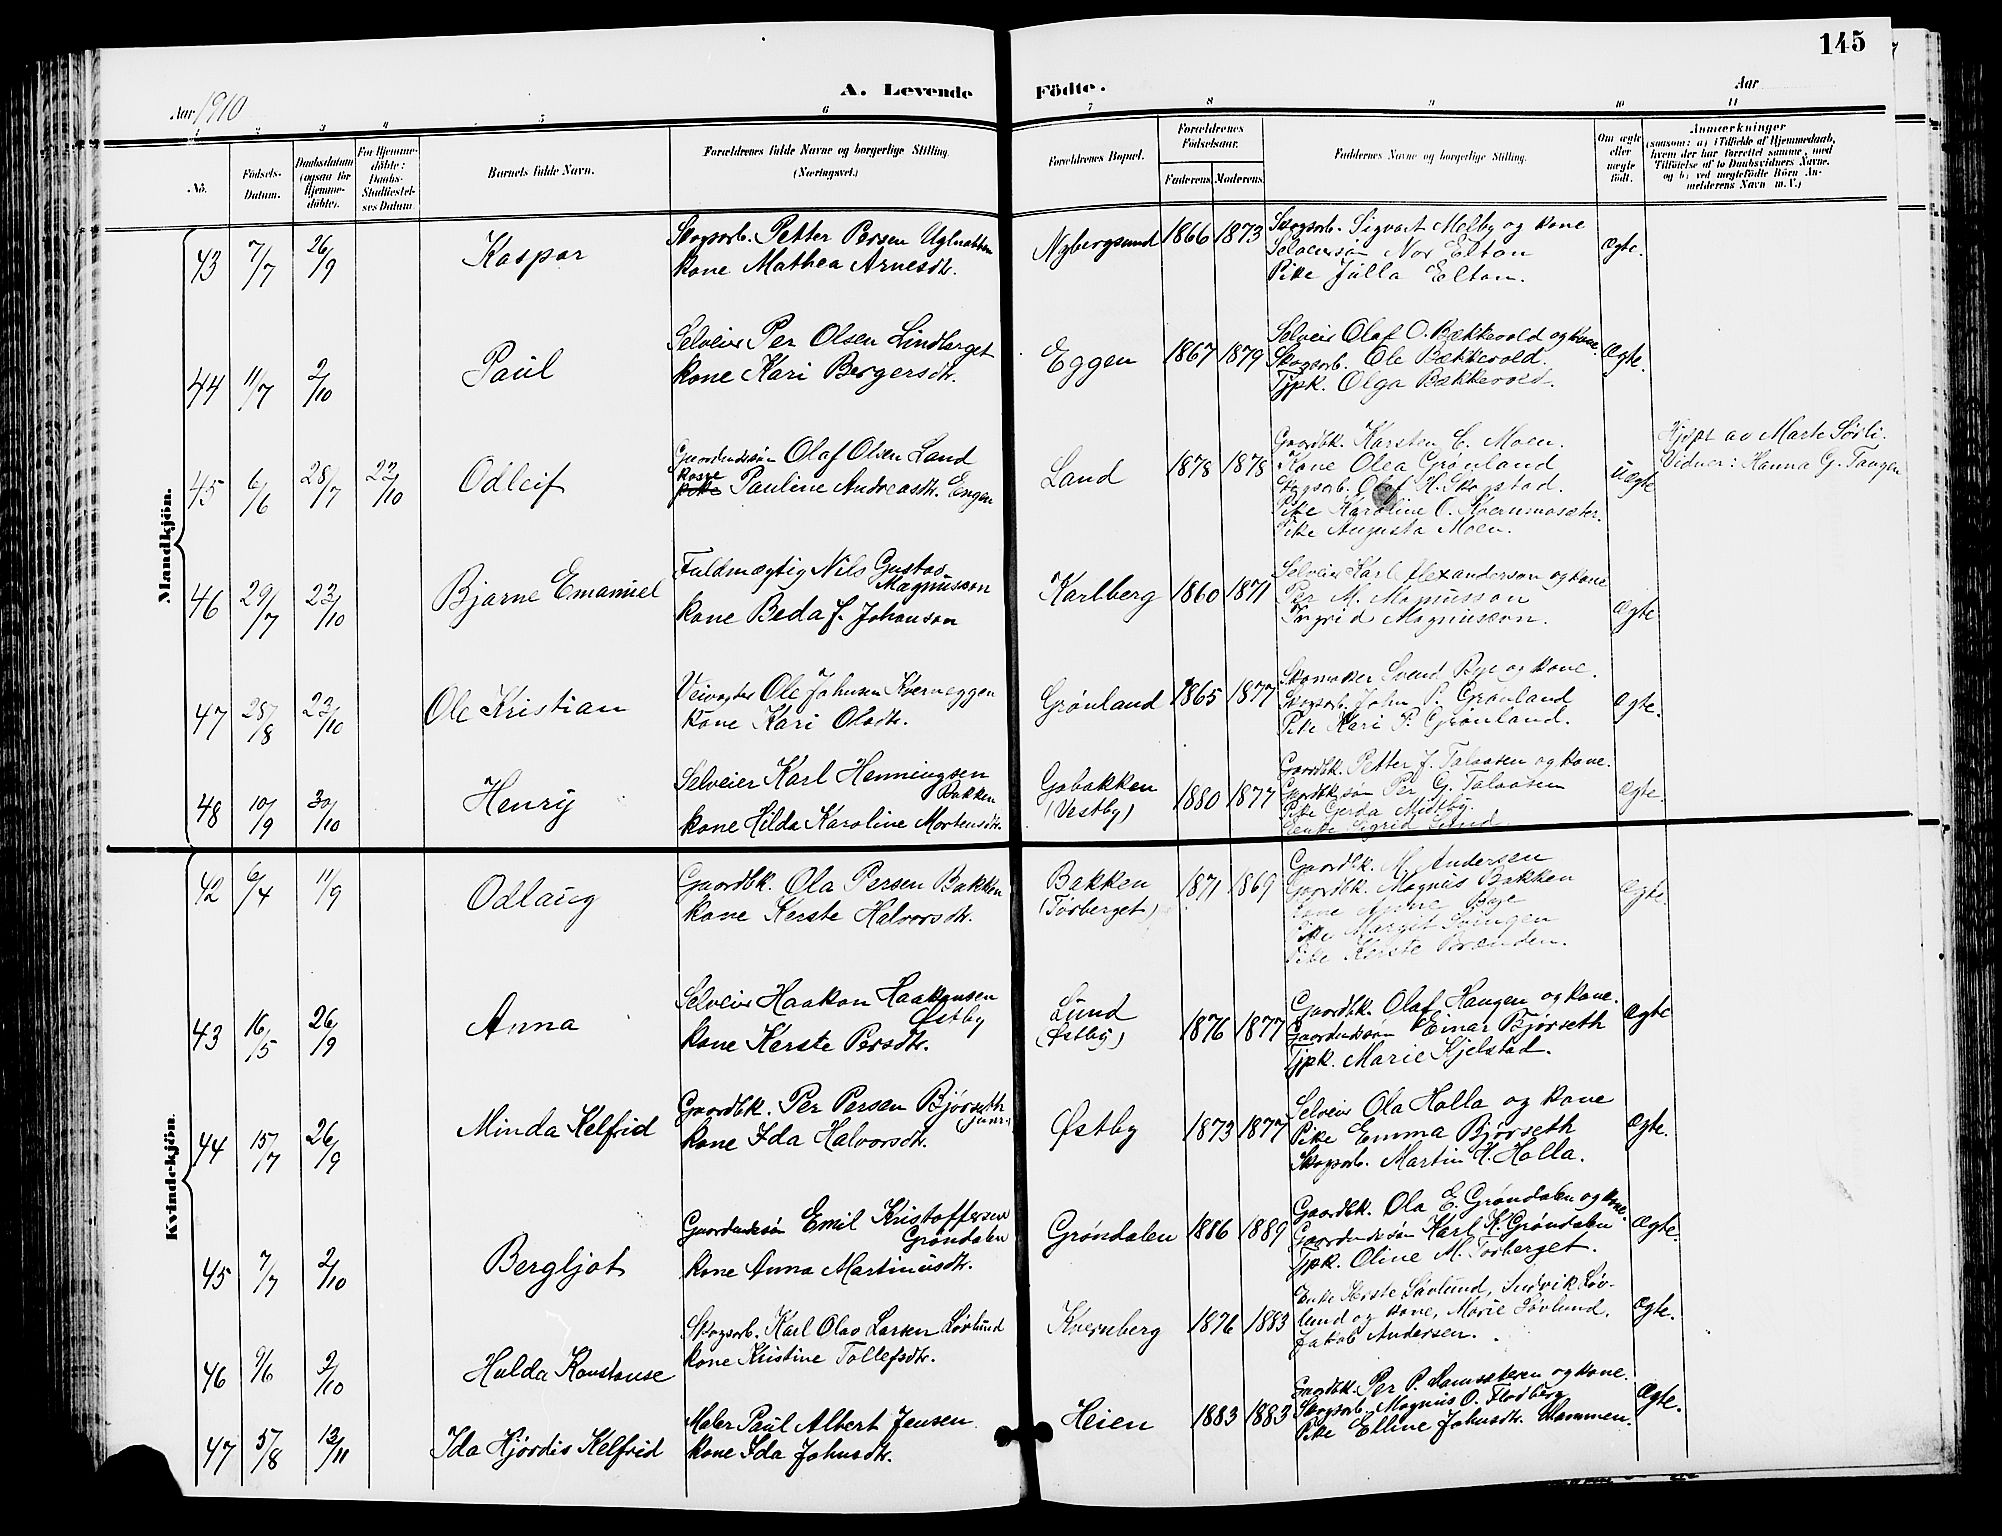 145
A. Levende Födte.
Aar 1910
Aar
1 2 3 4 5 6 7 8 9 10 11
No.
Födsels-Datum.
Daabsdatum (ogsaa for Hjemme-döbte).
For Hjemme-döbte: Daabs-Stadfæstel-ses Datum
Barnets fulde Navn.
Forældrenes fulde Navne og borgerlige Stilling. (Næringsvei.)
Forældrenes Bopæl.
Forældrenes Födselsaar.
Faderens. Moderens.
Faddernes Navne og borgerlige Stilling.
Om ægte eller uægte født.
Anmærkninger
(saasom: a) i Tilfælde af Hjemmedaab,
hvem der har forrettet samme, med
Tilföielse af to Daabsvidners Navne.
og b) ved uægtefödte Börn An-
melderens Navn m. V.)
Mandkjön.
43 7/7 26/9 Kaspar
Skogsarb. Petter Persen Uglnabben
kone Mathea Arnesdtr.
Nybergsund 1866 1873
Skogsarb. Sigvart Melby og kone
Selveiersøn Nor Elton
Pike Julla Elton.
ægte.
44 11/7 2/10 Paul
Selveier Per Olsen Lindberget
kone Kari Bergersdtr.
Eggen 1867 1879
Selveier Olaf O. Bækkevold og kone.
Skogsarb. Ole Bækkevold.
Tjpk. Olga Bækkevold.
ægte.
45 6/6 28/7 23/10 Odleif
Gaardmdssøn Olaf Olsen Land
kone
pike Pauline Andreasdtr. Engen
Land 1878 1878
Gaardbk. Karsten E. Moen.
Kone Olea Grønland
Skogsarb. Olaf H. Skogstad.
Pike Karoline O. Kvernmosæter.
Pike Augusta Moen.
uægte
Hjdpt av Marte Sørli.
Vidner: Hanna G. Tangen
46 29/7 23/10 Bjarne Emanuel
Fuldmægtig Nils Gustav
Magnusson
kone Beda J. Johanson
Karlberg 1860 1871
Selveier Karl Alexanderson og kone
Per M. Magnusson
Ingrid Magnusson.
ægte.
47 28/8 23/10 Ole Kristian
Veivogter Ole Johnsen Kverneggen
kone Kari Olsdtr.
Grønland 1865 1877
Skomaker Svend Bye og kone.
Skogsarb. John P. Grønland
Pike Kari P. Grønland.
ægte.
48 10/9 30/10 Henry
Selveier Karl Henningsen
Bakken
kone Hilda Karoline Mortensdtr.
Gobakken
(Vestby) 1880 1877
Gaardbk. Petter J. Talaasen og kone.
Gaardbksøn Per G. Talaasen
Pike Gerda Midtby.
Enke Sigrid Lund
ægte.
Kvindekjön.
42 6/4 11/9 Odlaug
Gaardbk. Ola Persen Bakken
kone Kerste Halvorsdtr.
Bakken
(Tørberget) 1871 1869
Gaardbk. M. Andersen
Gaardbk. Magnus Bakken
Kone Anne Bye
Pike Margit Svingen
Pike Kerste Brænden.
ægte.
43 16/5 26/9 Anna
Selveier Haakon Haakonsen
Østby
kone Kerste Persdtr.
Lund
(Østby) 1876 1877
Gaardbk. Olaf Haugen og kone.
Gaardmdssøn Einar Bjørseth
Tjpk. Marie Kjelstad.
ægte
44 15/7 26/9 Minda Kelfrid
Gaardbk. Per Persen Bjørseth
(junr.)
kone Ida Halvorsdtr.
Østby 1873 1877
Selveier Ola Holla og kone
Pike Emma Bjørseth
Skogsarb. Martin H. Holla.
ægte.
45 7/7 2/10 Bergljot
Gaardmdssøn Emil Kristoffersen
Grøndalen
kone Anna Martiniusdtr.
Grøndalen 1886 1889
Gaardbk. Ola E. Grøndalen og kone.
Gaardmdssøn Karl K. Grøndalen
Tjpk. Oline M. Tørberget.
ægte.
46 9/6 2/10 Hulda Konstanse
Skogsarb. Karl Olav Larsen Løvlund
kone Kristine Tollefsdtr.
Kvernberg 1876 1883
Enke Kerste Løvlund, Ludvik Løv-
lund og kone, Marie Løvlund.
Jakob Andersen.
ægte.
47 5/8 13/11 Ida Hjørdis Kelfrid
Maler Paul Albert Jensen
kone Ida Johnsdtr.
Heien 1883 1883
Gaardbk. Per P. og kone.
Skogsarb. Magnus O. Flodberg
Pike Elline Johnsdtr. Hammen.
ægte.